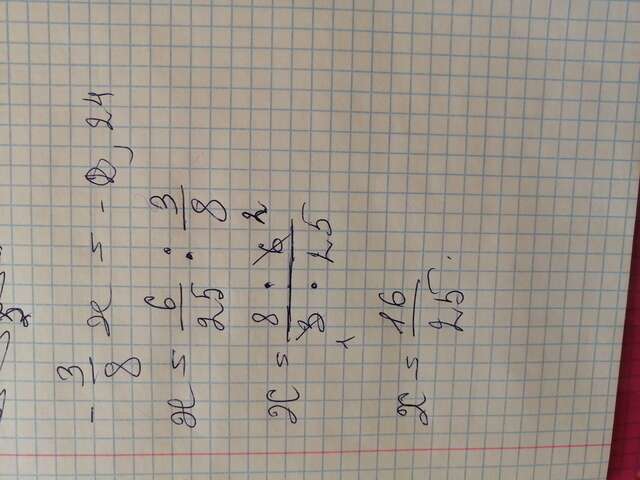 - 3/8 x = - 0,24
x = 6/25 : 3/8
x = 8 · 6 2 / 3 · 25 1
x = 16/25.